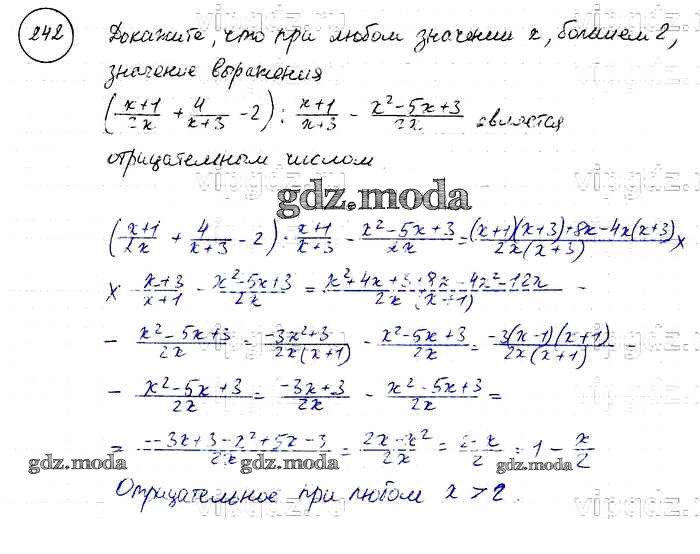 242 Докажите, что при любом значении x, большем 2,
значение выражения
(x+1/2x + 4/x+3 - 2) : x+1/x+3 - x²-5x+3/2x является
отрицательным числом
gdz.moda
(x+1/2x + 4/x+3 - 2) : x+1/x+3 - x²-5x+3/2x = (x+1)(x+3)+8x-4x(x+3)/2x(x+3) x
x x+3/x+1 - x²-5x+3/2x = x²+4x+3+8x-4x²-12x/2x(x+1) -
- x²-5x+3/2x = -3x²+3/2x(x+1) - x²-5x+3/2x = -3(x-1)(x+1)/2x(x+1) -
- x²-5x+3/2x = -3x+3/2x - x²-5x+3/2x =
= -3x+3-x²+5x-3/2x = 2x-x²/2x = 2-x/2 = 1 - x/2
gdz.moda gdz.moda gdz.moda
Отрицательное при любом x > 2.